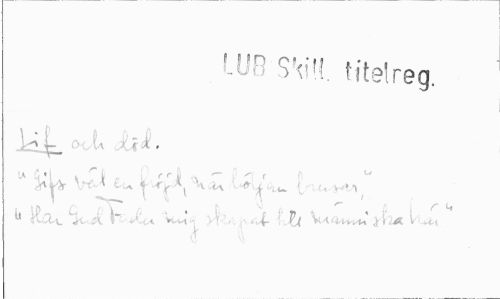 LUB Skill. titelreg.
Lif och död.
"Gifs väl en fröjd, när böljan brusar,"
"Har Gud Fader mig skapat till människa här"